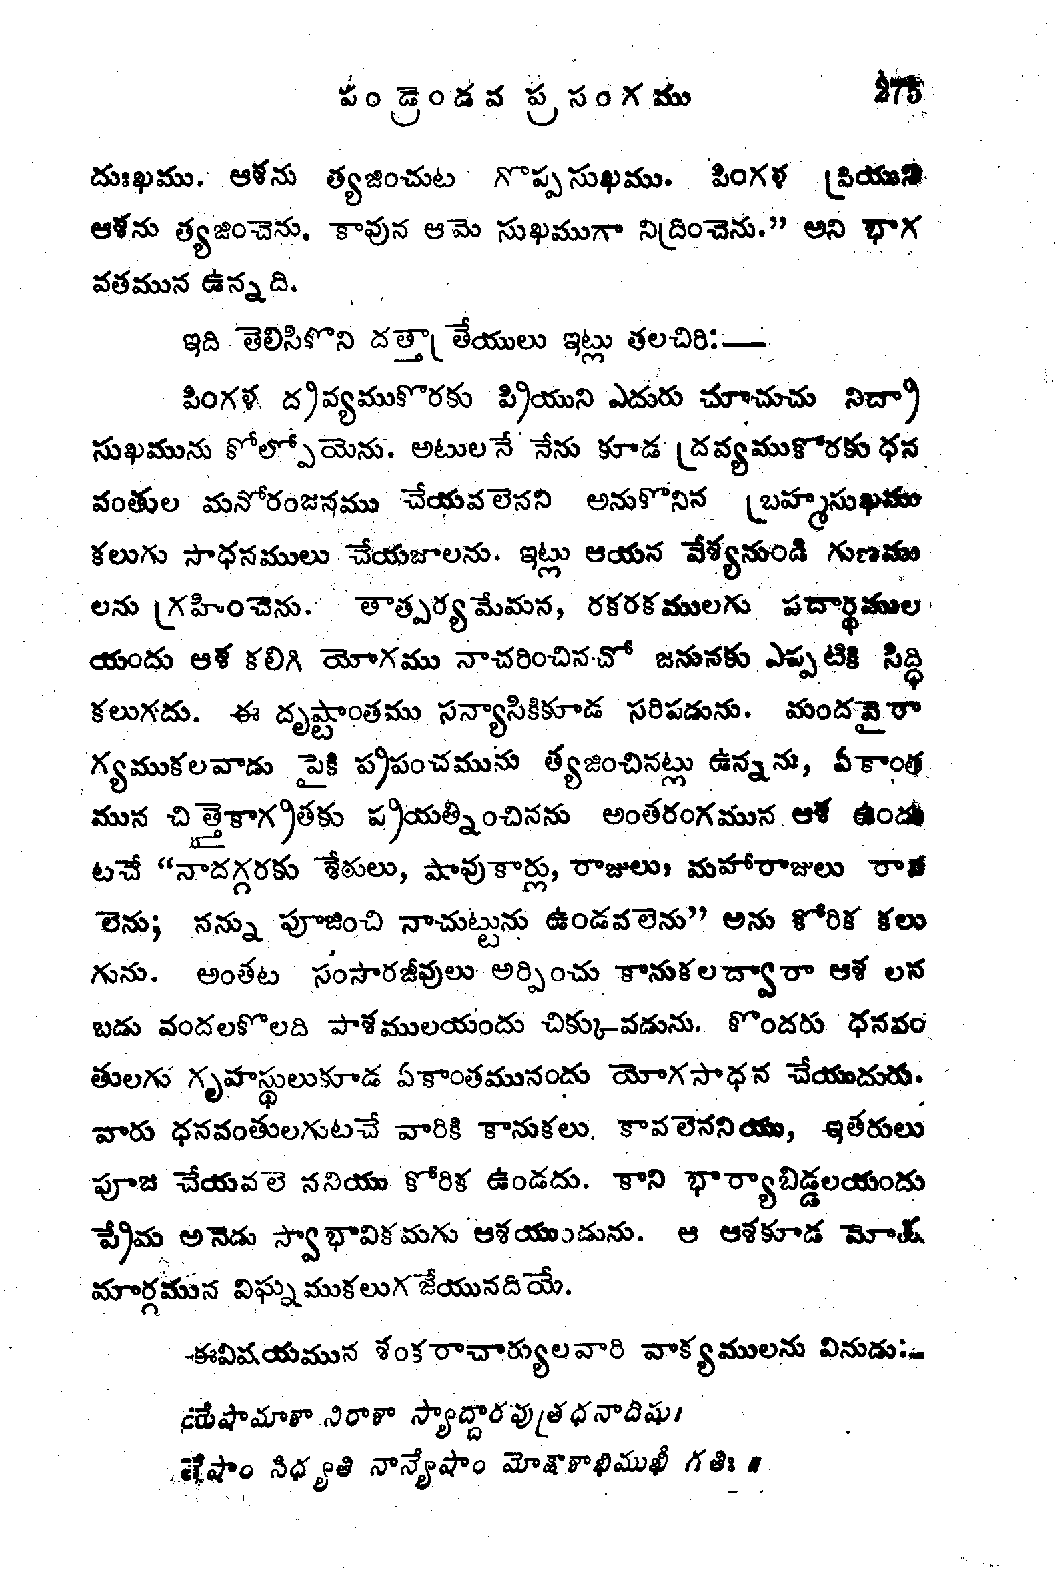 పండ్రెండవ ప్రసంగము 275
దుఃఖము. ఆశను త్యజించుట గొప్పసుఖము. పింగళ ప్రియుని
ఆశను త్యజించెను. కావున ఆమె సుఖముగా నిద్రించెను.” అని భాగ
వతమున ఉన్నది.
ఇది తెలిసికొని దత్తాత్రేయులు ఇట్లు తలచిరి:—
పింగళ ద్రవ్యముకొరకు ప్రియుని ఎదురు చూచుచు నిద్రా
సుఖమును కోల్పోయెను. అటులనే నేను కూడ ద్రవ్యముకోరకు ధన
వంతుల మనోరంజనము చేయవలెనని అనుకొనిన బ్రహ్మసుఖము
కలుగు సాధనములు చేయజాలను. ఇట్లు ఆయన వేశ్యనుండి గుణము
లను గ్రహించెను. తాత్పర్యమేమన, రకరకములగు పదార్థముల
యందు ఆశ కలిగి యోగము నాచరించినచో జనునకు ఎప్పటికి సిద్ధి
కలుగదు. ఈ దృష్టాంతము సన్యాసికికూడ సరిపడును. మందవైరా
గ్యముకలవాడు పైకి ప్రపంచమును త్యజించినట్లు ఉన్నను, ఏకాంత
మున చిత్తైకాగ్రతకు ప్రయత్నించినను అంతరంగమున ఆశ ఉండు
టచే “నాదగ్గరకు శేఠులు, షావుకార్లు, రాజులు, మహారాజులు రావ
లెను; నన్ను పూజించి నాచుట్టును ఉండవలెను” అను కోరిక కలు
గును. అంతట సంసారజీవులు అర్పించు కానుకలద్వారా ఆశ లన
బడు వందలకొలది పాశములయందు చిక్కువడును. కొందరు ధనవం
తులగు గృహస్థులుకూడ ఏకాంతమునందు యోగసాధన చేయుదురు.
వారు ధనవంతులగుటచే వారికి కానుకలు కావలెననియు, ఇతరులు
పూజ చేయవలె ననియు కోరిక ఉండదు. కాని భార్యాబిడ్డలయందు
ప్రేమ అనెడు స్వాభావికమగు ఆశయుండును. ఆ ఆశకూడ మోక్ష
మార్గమున విఘ్నముకలుగజేయునదియే.
ఈవిషయమున శంకరాచార్యులవారి వాక్యములను వినుడు:–
యేషామాశా నిరాశా స్యాద్దారపుత్రధనాదిషు।
తేషాం సిధ్యతి నాన్యేషాం మోక్షాశాభిముఖీ గతిః ॥